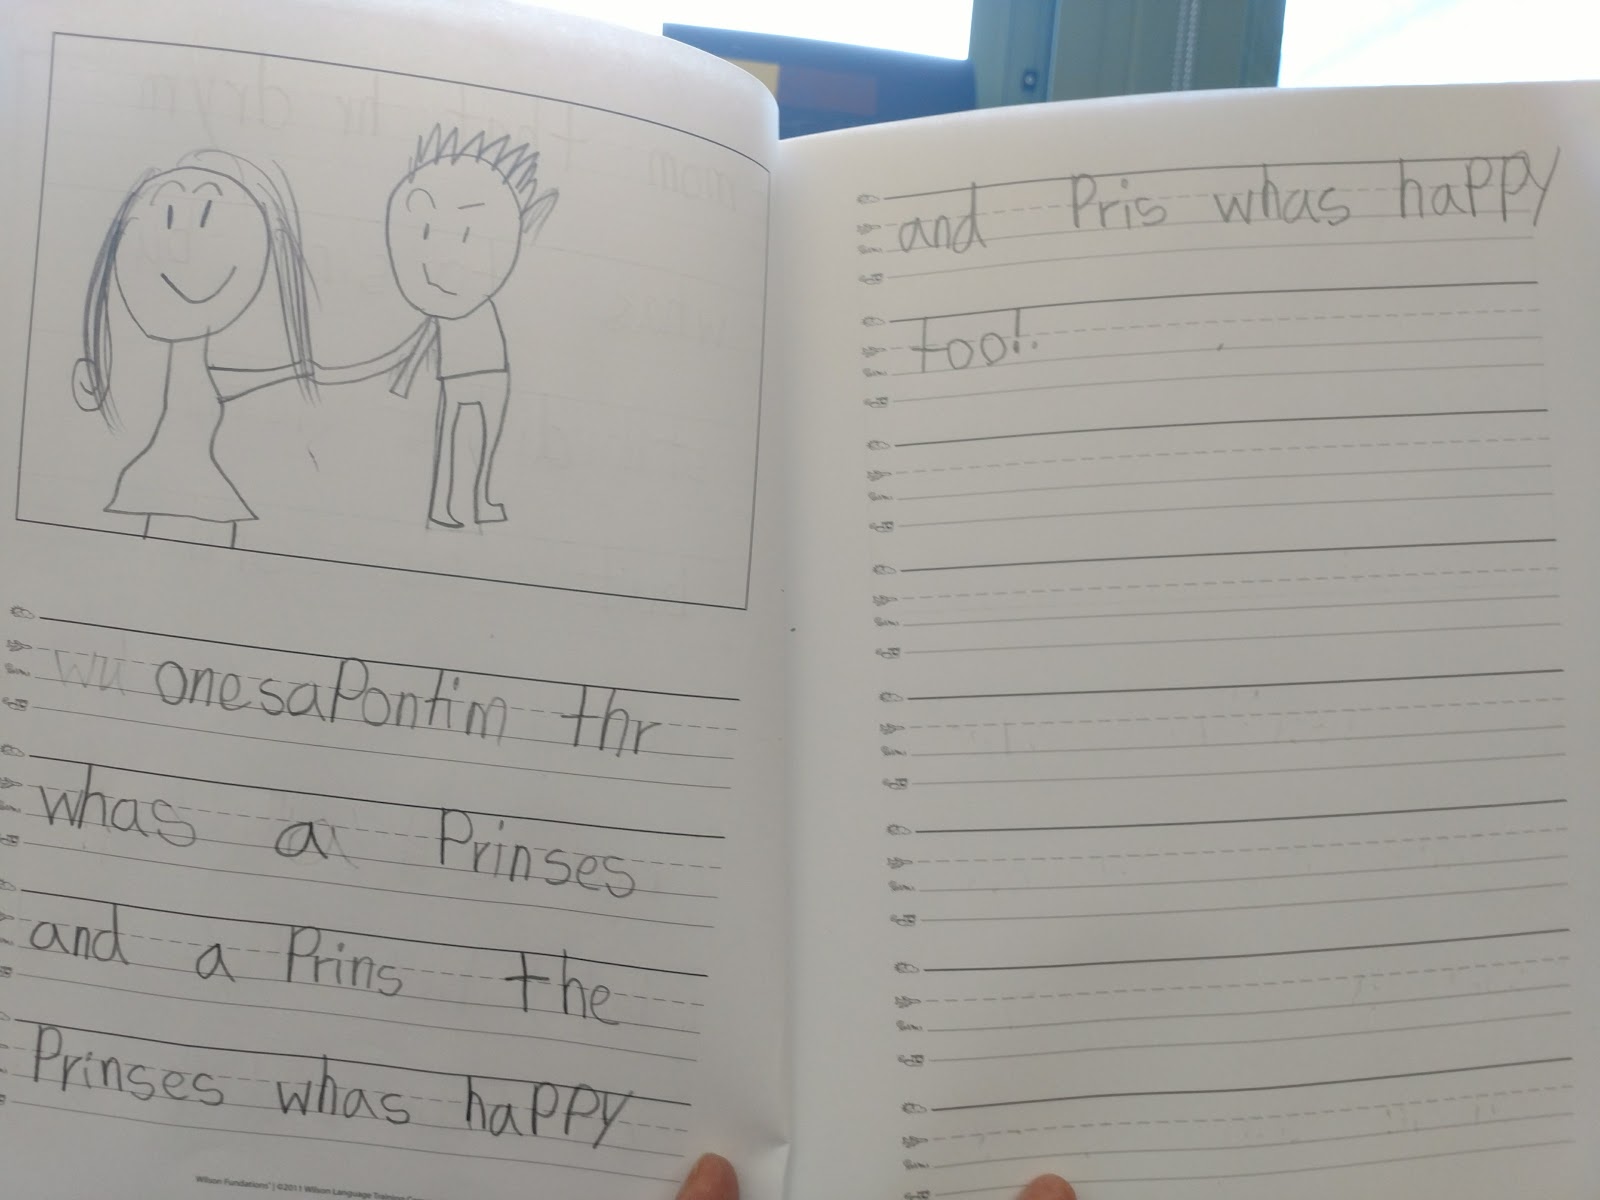 wu onesaPontim thr
whas a Prinses
and a Prins the
Prinses whas haPPy
Wilson Fundations® | ©2011 Wilson Language Training
and Pris whas haPPy
too!.